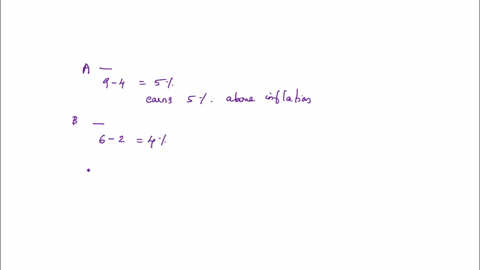 A —
9-4 = 5%.
earns 5%. above inflation
B —
6-2 = 4%